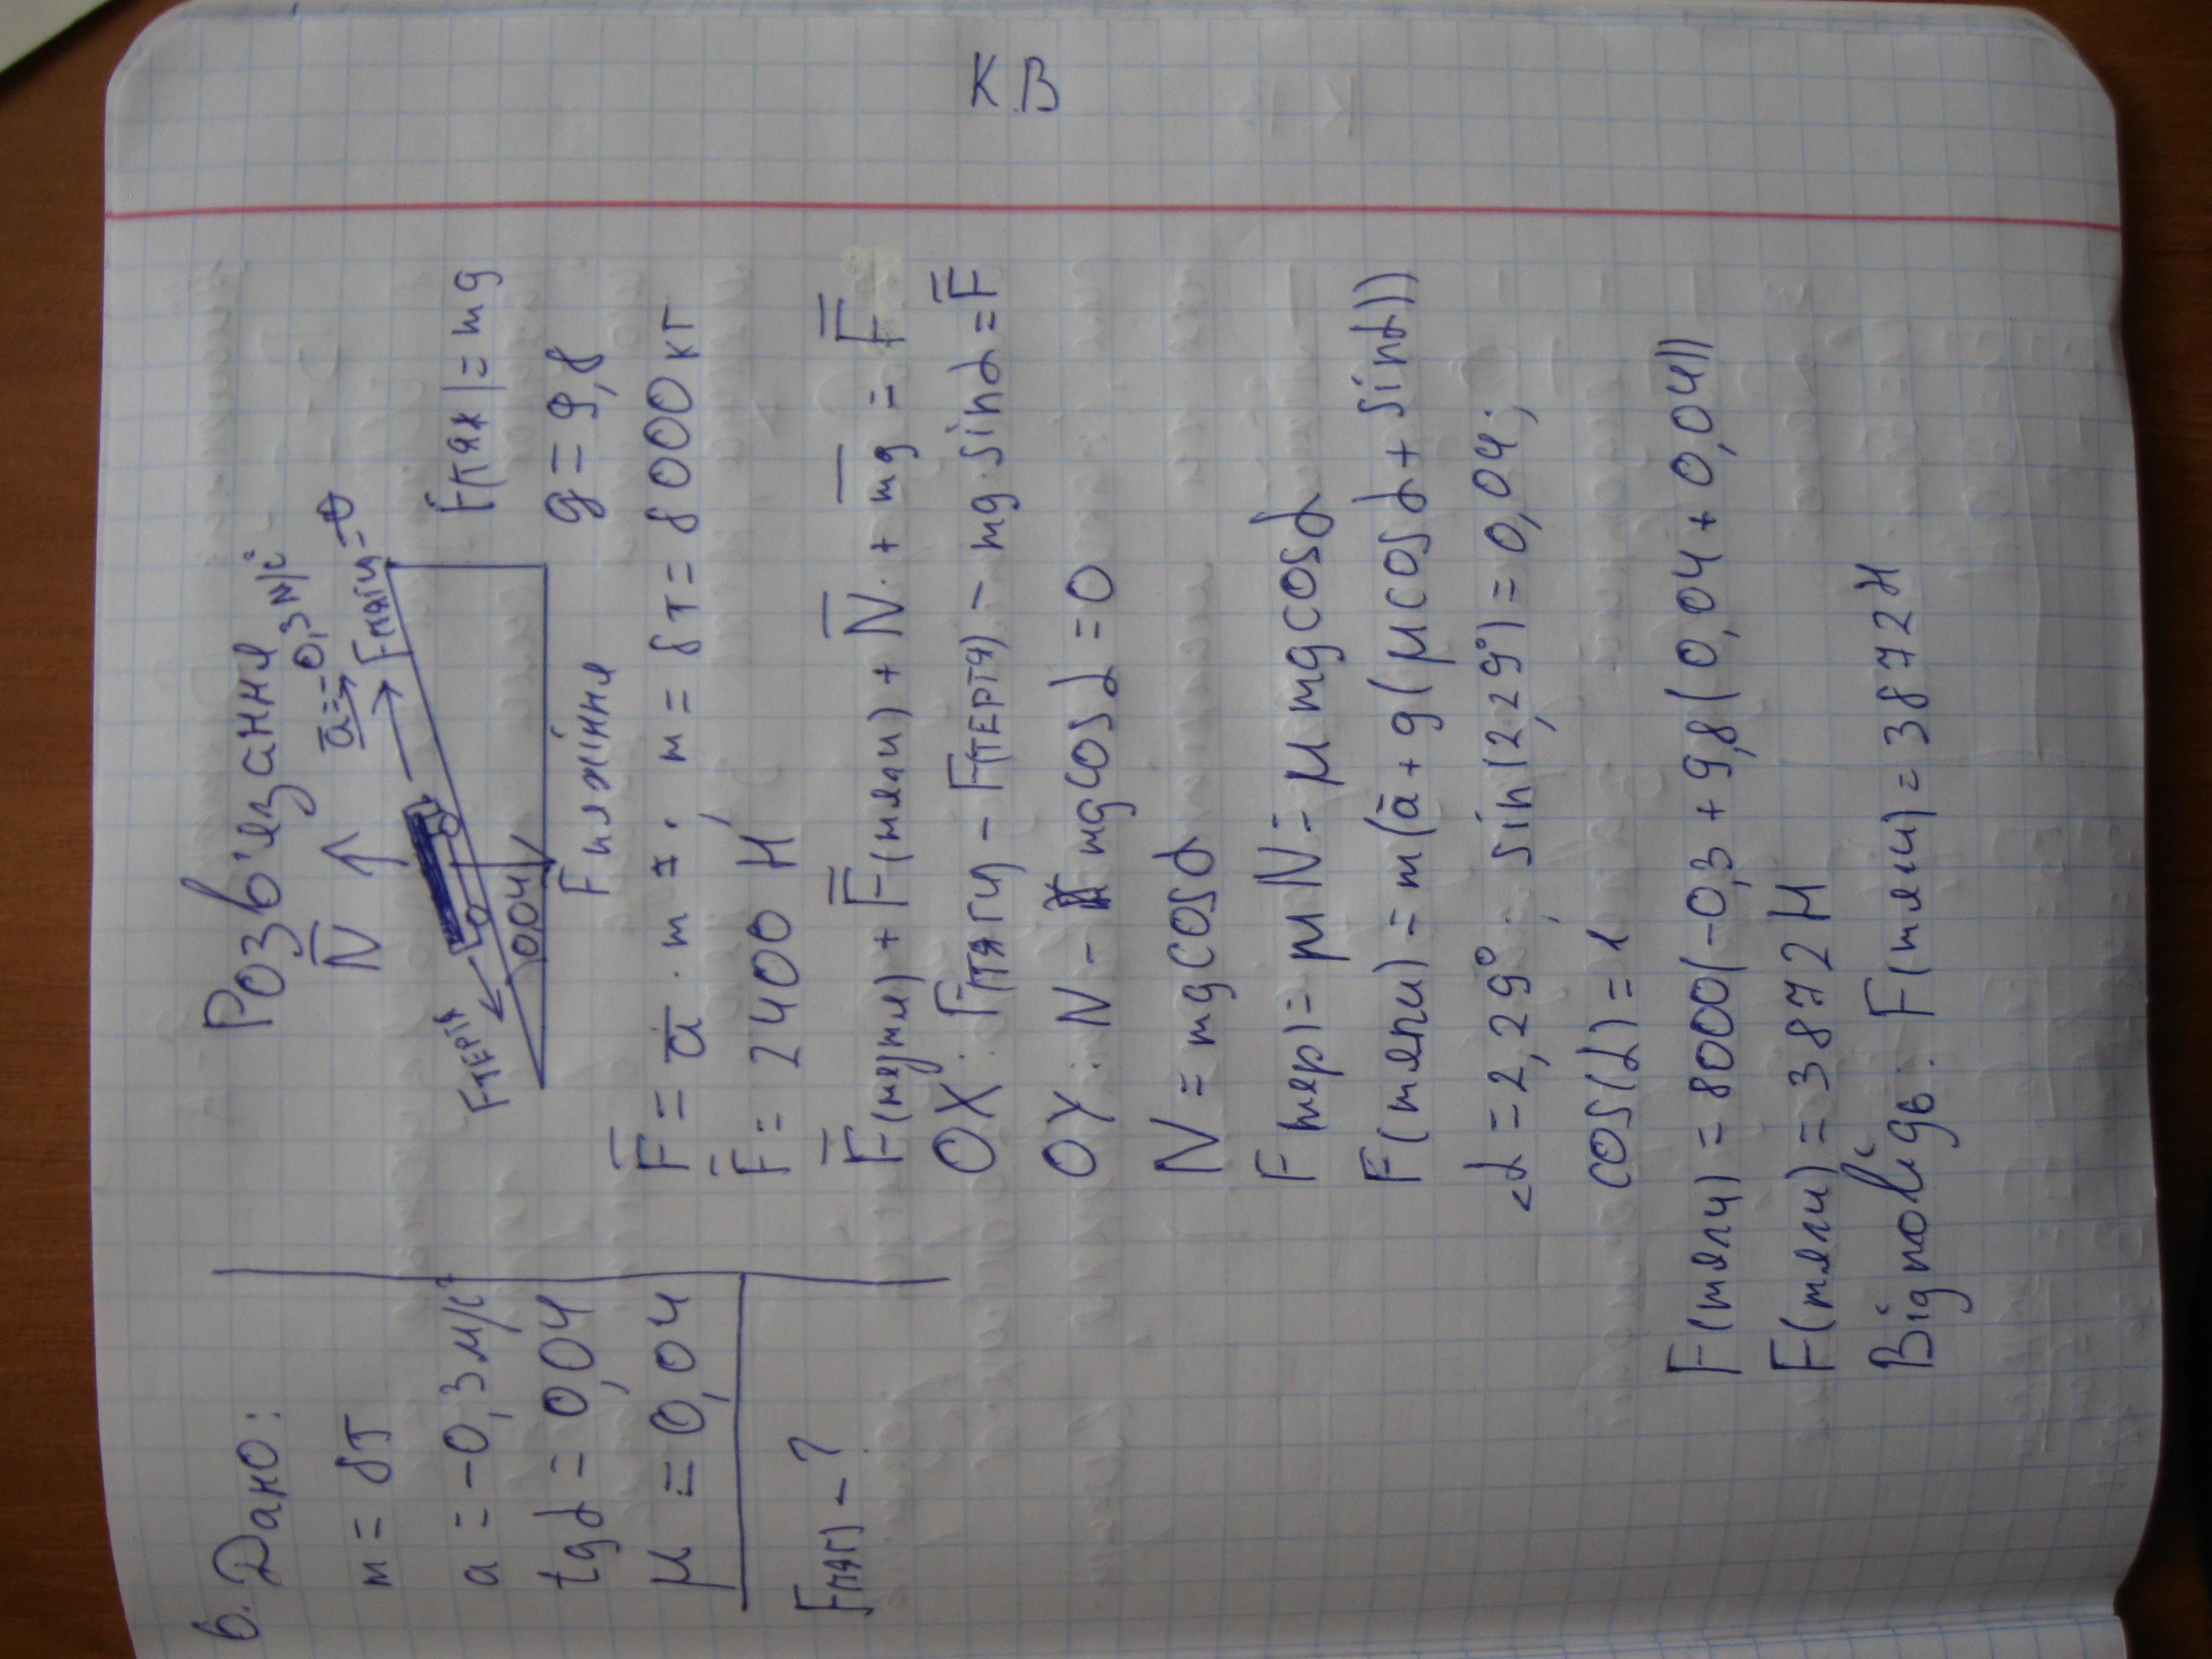 КВ
6. Дано:
m = 8т
a = -0,3м/с²
tgα = 0,04
μ = 0,04
Fтяг) - ?
Розв'язання
N
a = -0,3м/с²
Fтяги
Fтертя
0,04
Fтяжіння
F(тяж) = mg
g = 9,8
F = a · m = ; m = 8т = 8000кг
F = 2400 Н
F(тертя) + F(тяги) + N + mg = F
OX: F(тяги) - F(тертя) - mg · sinα = F
OY: N - mg cosα = 0
N = mg cosα
Fтер) = μN = μmg cosα
F(тяги) = m(a + g(μcosα + sinα))
∠α = 2,29°; sin(2,29°) = 0,04;
cos(α) = 1
F(тяги) = 8000(-0,3 + 9,8(0,04 + 0,04))
F(тяги) = 3872 Н
Відповідь: F(тяги) = 3872Н